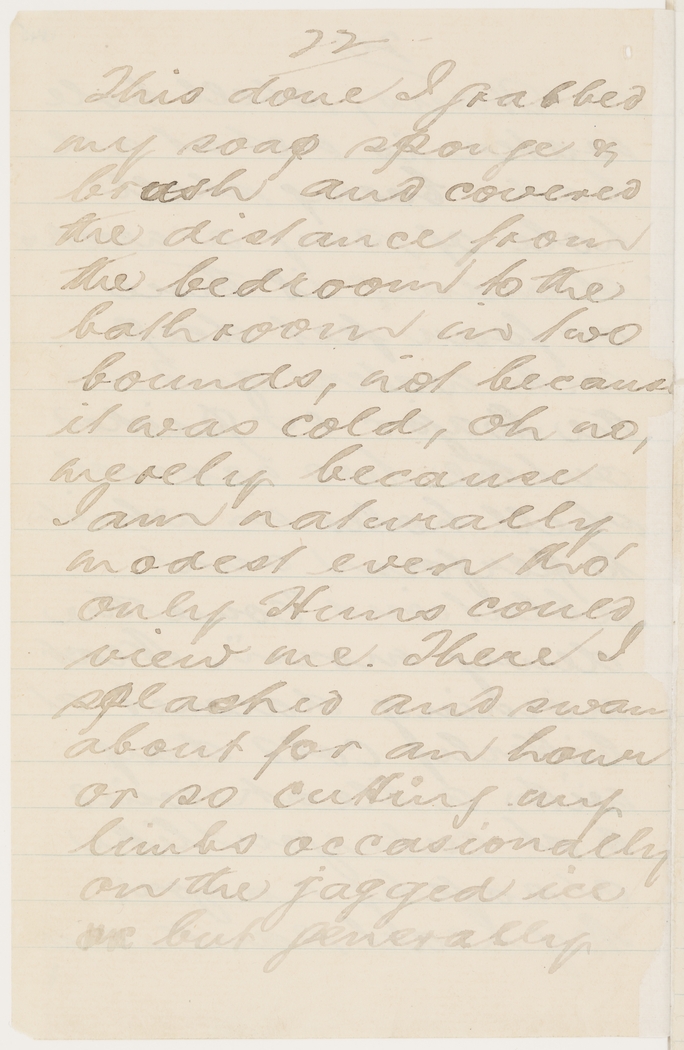 22
This done I grabbed
my soap sponge &
brush and covered
the distance from
the bedroom to the
bathroom in two
bounds, not because
it was cold, oh no,
merely because
I am naturally
modest even tho'
only Huns could
view me. There I
splashed and swam
about for an hour
or so cutting my
limbs occasionally
on the jagged ice
but generally